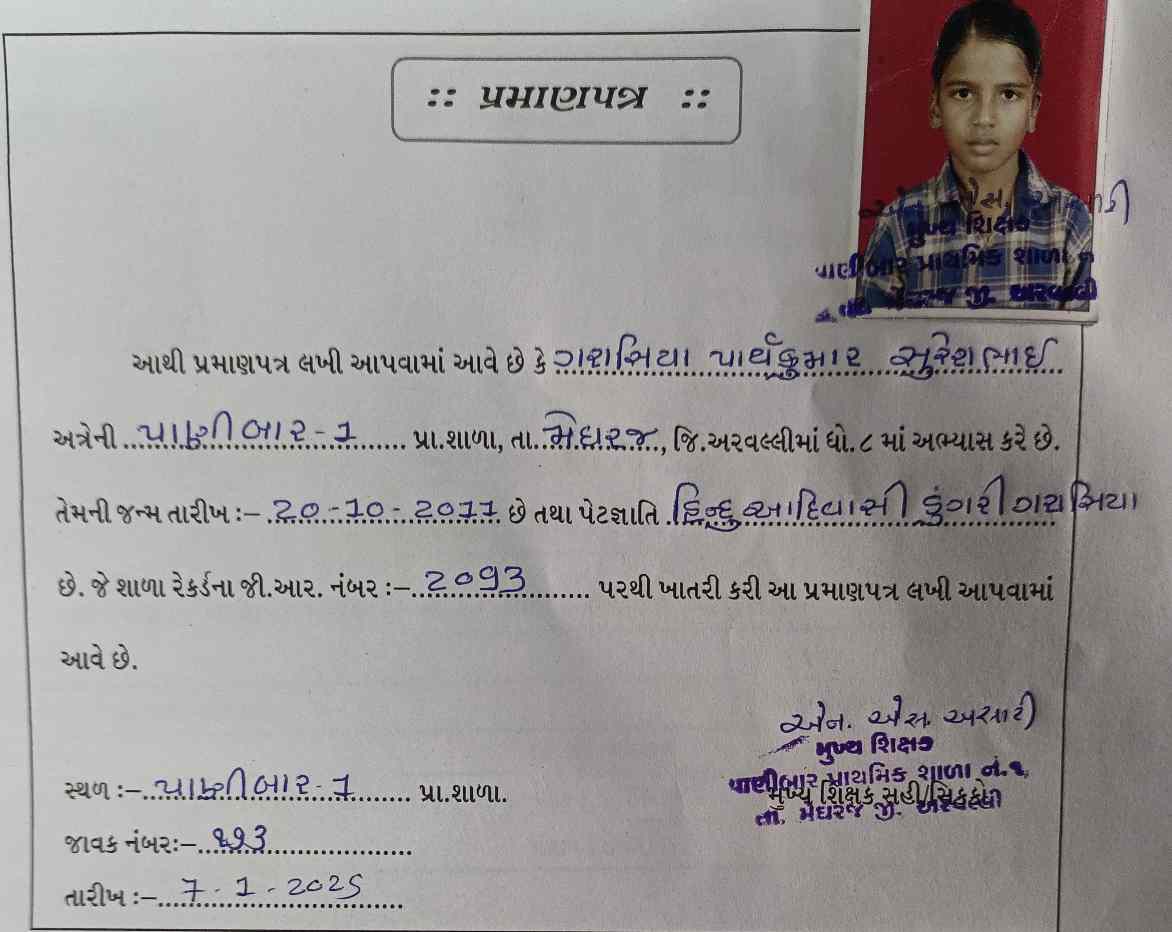 :: પ્રમાણપત્ર ::
એન. એસ. અસારી
મુખ્ય શિક્ષક
પાણીબાર પ્રાથમિક શાળા નં
તા. મેઘરજ જી. અરવલ્લી
આથી પ્રમાણપત્ર લખી આપવામાં આવે છે કે ગરાસિયા પાર્થકુમાર સુરેશભાઈ
અત્રેની પાણીબાર-1 પ્રા.શાળા, તા. મેઘરજ, જિ.અરવલ્લીમાં ધો. ૮ માં અભ્યાસ કરે છે.
તેમની જન્મ તારીખ :- 20-10-2011 છે તથા પેટજ્ઞાતિ હિન્દુ આદિવાસી ડુંગરી ગરાસિયા
છે. જે શાળા રેકર્ડના જી.આર. નંબર :- 2093 પરથી ખાતરી કરી આ પ્રમાણપત્ર લખી આપવામાં
આવે છે.
એન. એસ. અસારી
મુખ્ય શિક્ષક
પાણીબાર પ્રાથમિક શાળા નં.૧,
મુખ્ય શિક્ષક સહી/સિક્કો
તા. મેઘરજ જી. અરવલ્લી
સ્થળ :- પાણીબાર-1 પ્રા.શાળા.
જાવક નંબર:- ૧૧3
તારીખ :- 7-1-2025